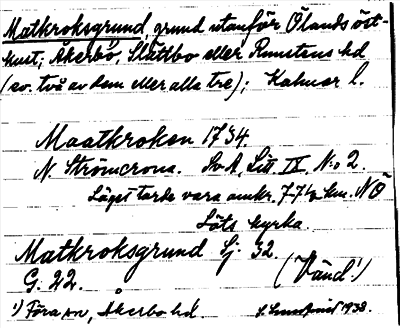 Matkroksgrund, grund utanför Ölands öst-
kust; Åkerbo, Slättbo eller Runstens hd
(ev. två av dem eller alla tre); Kalmar l.
Maatkroken 1794.
N. Strömcrona. SvA, Litt IX, N:o 2.
Läget torde vara omkr. 7-7½ km. NÖ
Löts kyrka.
Matkroksgrund Sj. 32.
G. 22.
(Vänd!)
¹) Föra sn, Åkerbo hd.
1938.